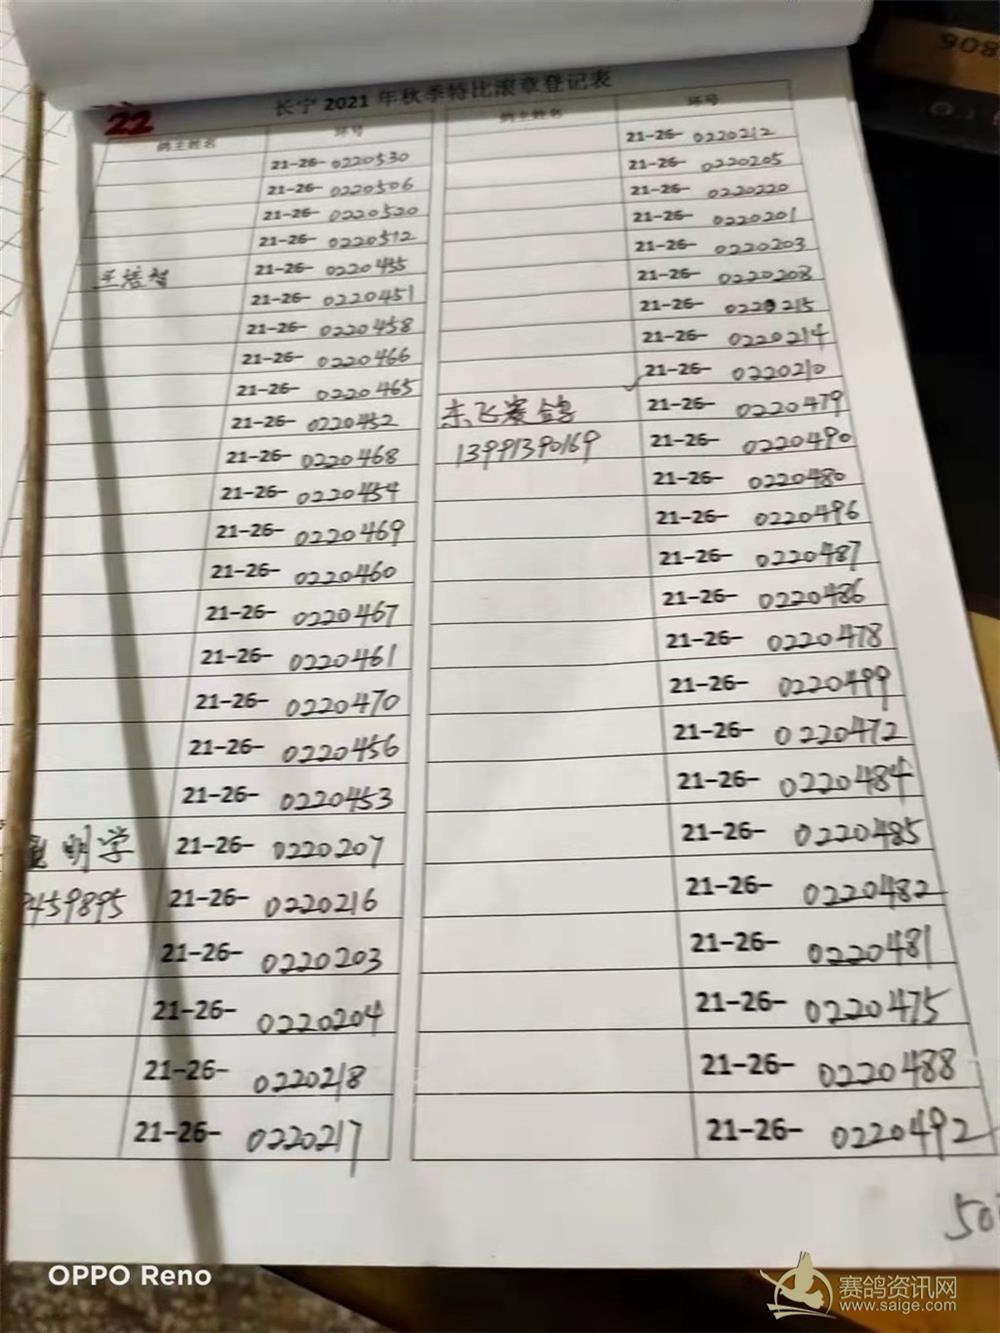 806
22
长宁 2021 年秋季特比滚章登记表
鸽主姓名 环号
21-26- 0220530
21-26- 0220506
21-26- 0220520
21-26- 0220512
王培智 21-26- 0220435
21-26- 0220451
21-26- 0220458
21-26- 0220466
21-26- 0220465
21-26- 0220452
21-26- 0220468
21-26- 0220454
21-26- 0220469
21-26- 0220460
21-26- 0220467
21-26- 0220461
21-26- 0220470
21-26- 0220456
21-26- 0220453
明学 21-26- 0220207
9459895 21-26- 0220216
21-26- 0220203
21-26- 0220204
21-26- 0220218
21-26- 0220217
鸽主姓名 环号
21-26- 0220212
21-26- 0220205
21-26- 0220220
21-26- 0220201
21-26- 0220203
21-26- 0220208
21-26- 0220215
21-26- 0220214
21-26- 0220210
东飞赛鸽 21-26- 0220479
13991390169 21-26- 0220490
21-26- 0220480
21-26- 0220496
21-26- 0220487
21-26- 0220486
21-26- 0220478
21-26- 0220499
21-26- 0220472
21-26- 0220484
21-26- 0220485
21-26- 0220482
21-26- 0220481
21-26- 0220475
21-26- 0220488
21-26- 0220492
OPPO Reno
赛鸽资讯网
www.saige.com